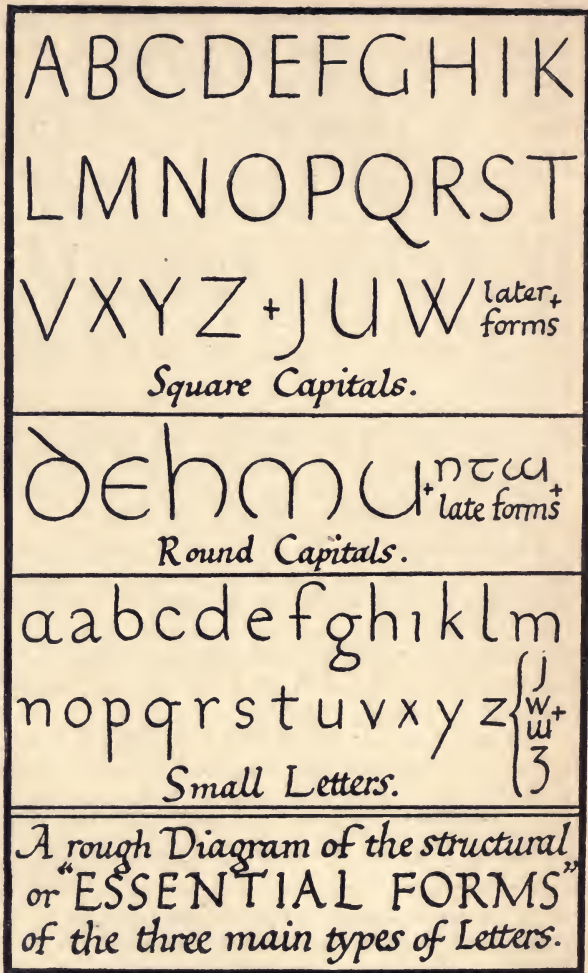 ABCDEFGHIK
LMNOPQRST
VXYZ + JUW later +
forms
Square Capitals.
δεhmu + nτɯ +
late forms
Round Capitals.
ɑabcdefghıklm
nopqrstuvxyz { j
w +
ɯ
ʒ
Small Letters.
A rough Diagram of the structural
or “ESSENTIAL FORMS”
of the three main types of Letters.